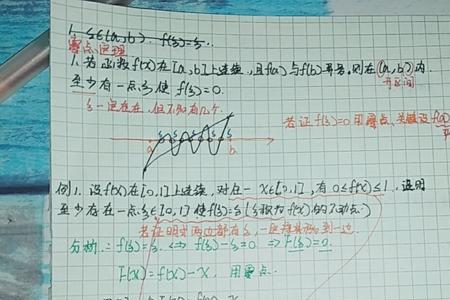 1. ξ∈(a,b). f(ξ)=ξ..
零点定理
1. 若函数f(x)在[a,b]上连续,且f(a)与f(b)异号,则在(a,b)内
开区间
至少有一点ξ,使f(ξ)=0.
ξ一定存在,但不知有几个.
若证f(ξ)=0用零点,关键设f(a)
a ξ ξ ξ ξ ξ b
例1. 设f(x)在[0,1]上连续,对任一x∈[0,1],有0≤f(x)≤1.说明
至少存在一点ξ∈[0,1]使f(ξ)=ξ(ξ称为f(x)的不动点)
若证明式两边都有ξ,一定移到一边.
分析:f(ξ)=ξ. ⇔ f(ξ)-ξ=0 ⇒ F(ξ)=0.
F(x)=f(x)-x, 用零点.